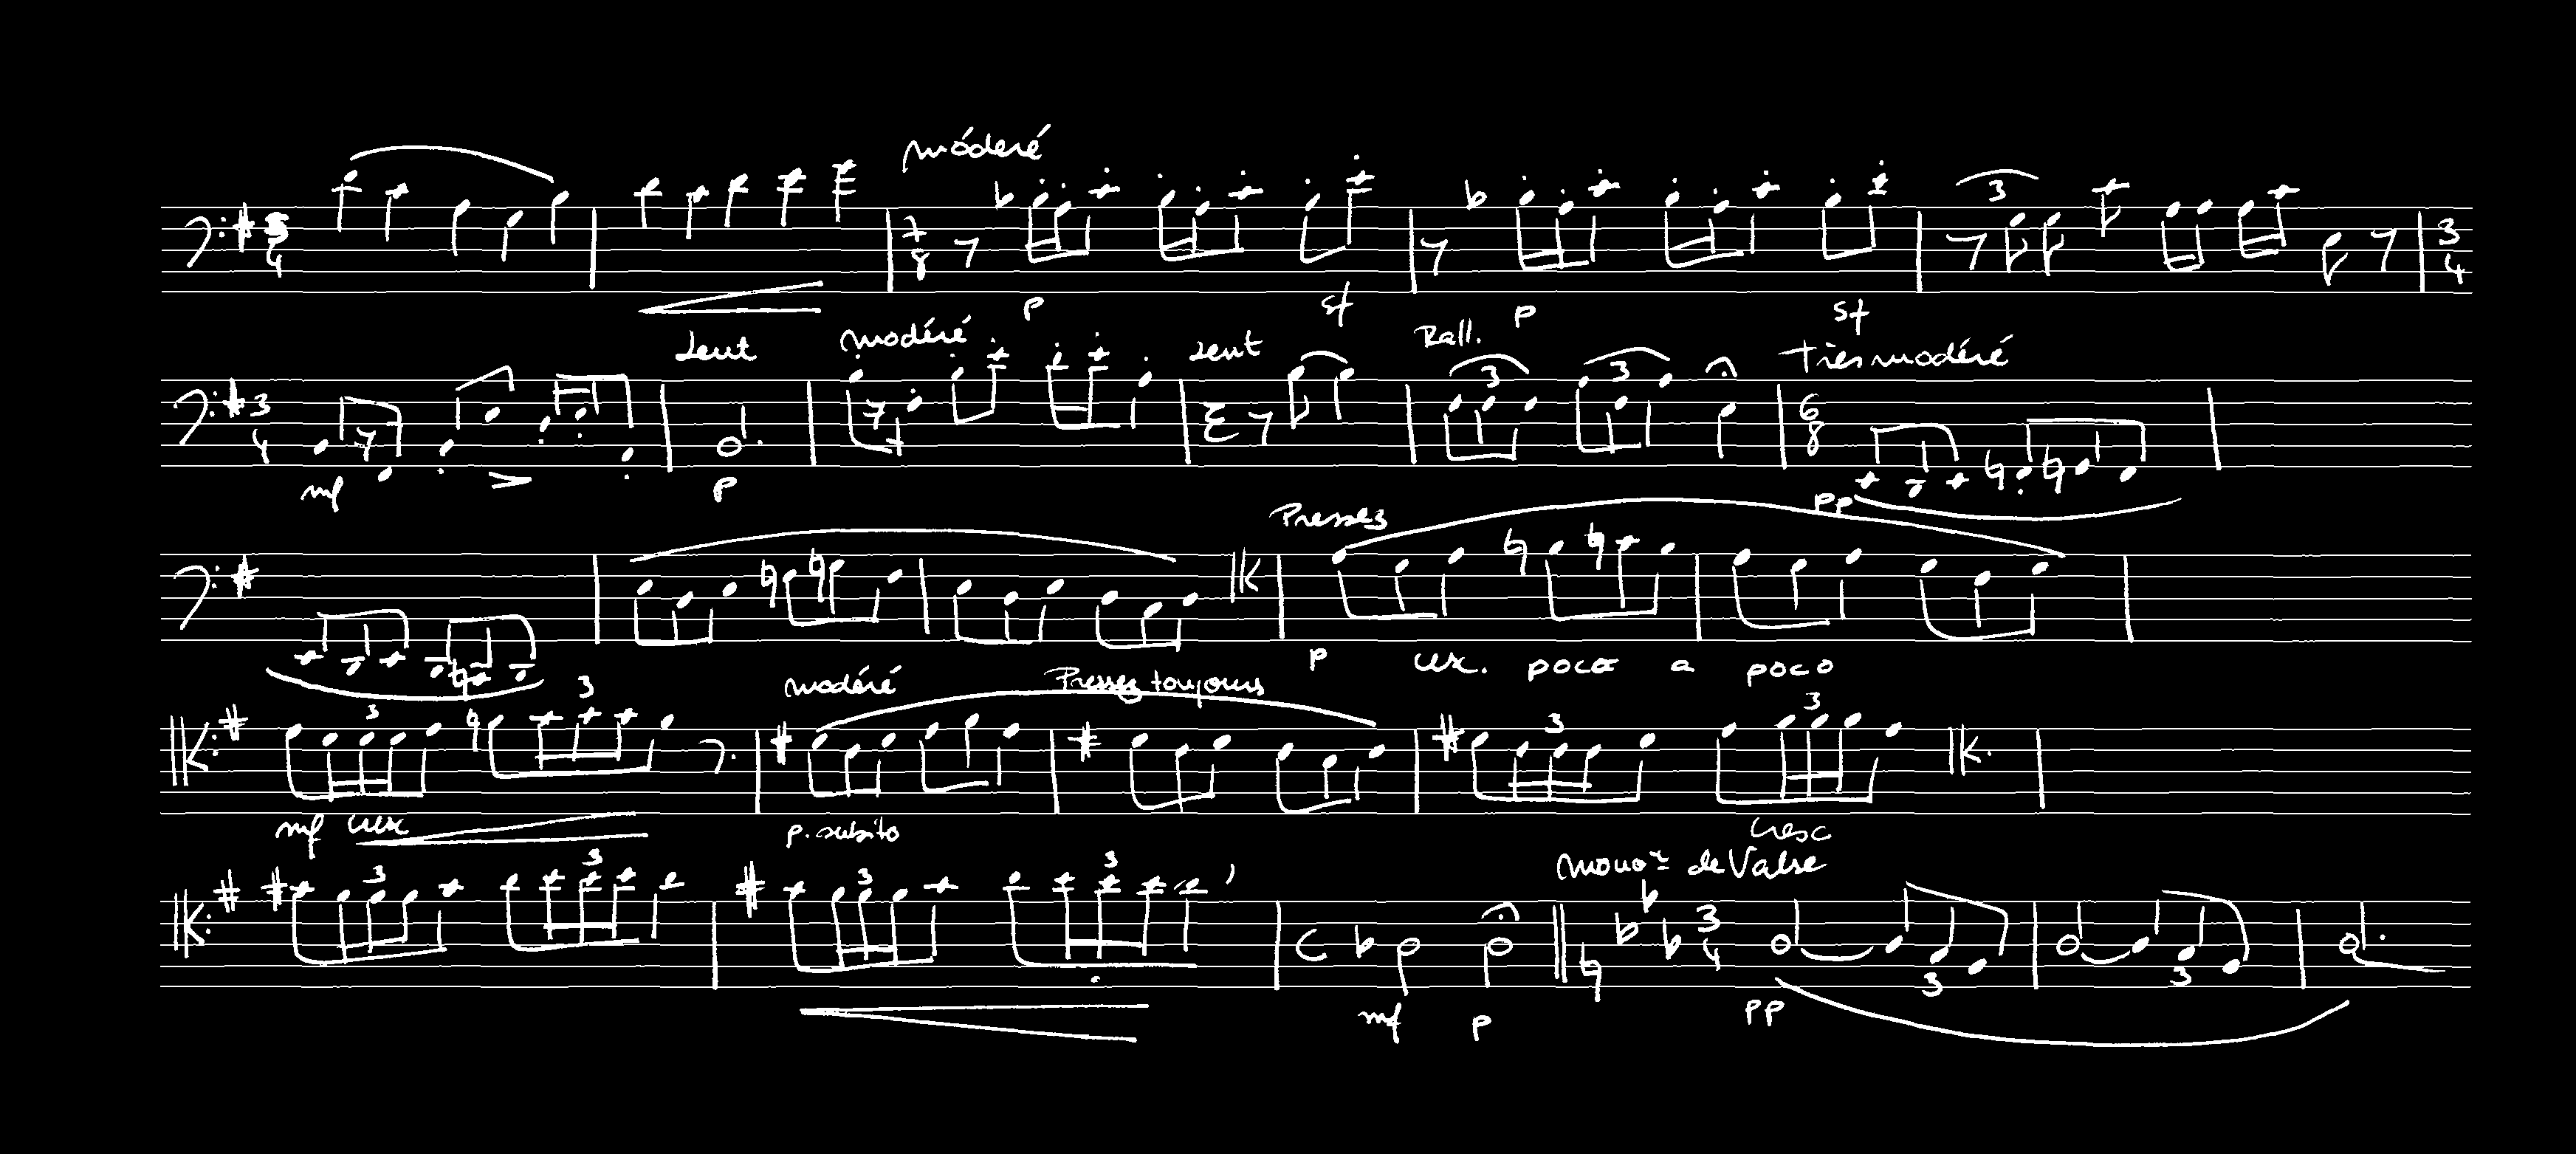 móderé
3 7 3 3
4 8 4
p sf p sf
Lent modéré Lent Rall. Tres modéré
3 3 3 6
4 8
mf p pp
Pressez
p cresc. poco a poco
modéré Pressez toujours
3 3 3 3
mf cresc p. subito cresc
mouvᵗ de Valse
3 3 3 3 3
4 3 3
mf p pp